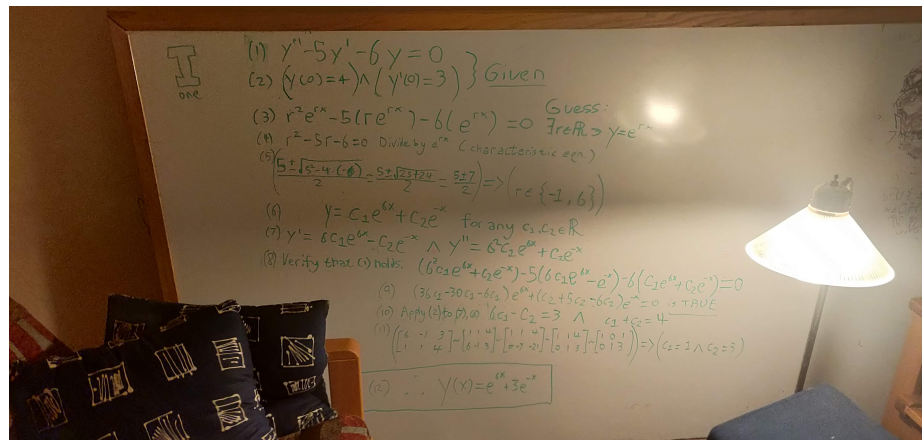 I
one
(1) y''-5y'-6y=0
(2) (y(0)=4)∧(y'(0)=3) } Given
Guess:
∃r∈ℝ∋ y=e^{rx}
(3) r²e^{rx}-5(re^{rx})-6(e^{rx})=0
(4) r²-5r-6=0 Divide by e^{rx} (characteristic eqn.)
(5) (5±√(5²-4·(-6))/2 = 5±√(25+24)/2 = 5±7/2) => (r∈{-1,6})
(6) y=c₁e^{6x}+c₂e^{-x} for any c₁,c₂∈ℝ
(7) y'=6c₁e^{6x}-c₂e^{-x} ∧ y''=6²c₁e^{6x}+c₂e^{-x}
(8) Verify that (1) holds. (6²c₁e^{6x}+c₂e^{-x})-5(6c₁e^{6x}-e^{-x})-6(c₁e^{6x}+c₂e^{-x})=0
(9) (36c₁-30c₁-6c₁)e^{6x}+(c₂+5c₂-6c₂)e^{-x}=0 is TRUE
(10) Apply (2) to (7), (6) 6c₁-c₂=3 ∧ c₁+c₂=4
(11) ([6 -1 3; 1 1 4]~[1 1 4; 6 -1 3]~[1 1 4; 0 -7 -21]~[1 1 4; 0 1 3]~[1 0 1; 0 1 3]) => (c₁=1∧c₂=3)
(12) ∴ y(x)=e^{6x}+3e^{-x}